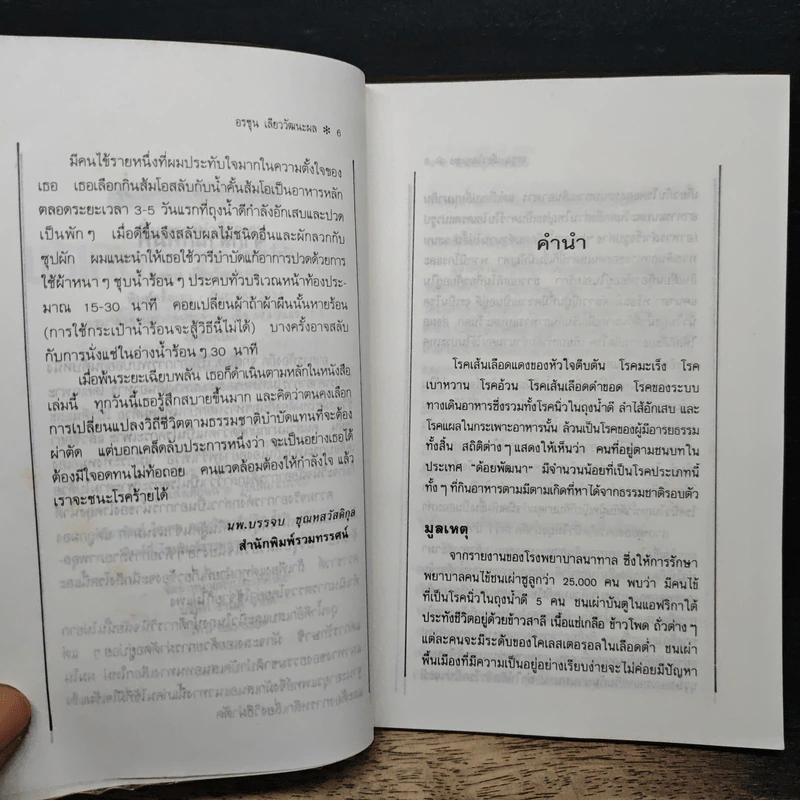 อรชุน เลียววัฒนะผล ✻ 6
มีคนไข้รายหนึ่งที่ผมประทับใจมากในความตั้งใจของ
เธอ เธอเลือกกินส้มโอสลับกับน้ำคั้นส้มโอเป็นอาหารหลัก
ตลอดระยะเวลา 3-5 วันแรกที่ถุงน้ำดีกำลังอักเสบและปวด
เป็นพักๆ เมื่อดีขึ้นจึงสลับผลไม้ชนิดอื่นและผักลวกกับ
ซุปผัก ผมแนะนำให้เธอใช้วารีบำบัดแก้อาการปวดด้วยการ
ใช้ผ้าหนาๆ ชุบน้ำร้อนๆ ประคบทั่วบริเวณหน้าท้องประ-
มาณ 15-30 นาที คอยเปลี่ยนผ้าถ้าผ้าผืนนั้นหายร้อน
(การใช้กระเป๋าน้ำร้อนจะสู้วิธีนี้ไม่ได้) บางครั้งอาจสลับ
กับการนั่งแช่ในอ่างน้ำร้อนๆ 30 นาที
เมื่อพ้นระยะเฉียบพลัน เธอก็ดำเนินตามหลักในหนังสือ
เล่มนี้ ทุกวันนี้เธอรู้สึกสบายขึ้นมาก และคิดว่าตนคงเลือก
การเปลี่ยนแปลงวิถีชีวิตตามธรรมชาติบำบัดแทนที่จะต้อง
ผ่าตัด แต่บอกเคล็ดลับประการหนึ่งว่า จะเป็นอย่างเธอได้
ต้องมีใจอดทนไม่ท้อถอย คนแวดล้อมต้องให้กำลังใจ แล้ว
เราจะชนะโรคร้ายได้
นพ.บรรจบ ชุณหสวัสดิกุล
สำนักพิมพ์รวมทรรศน์
คำนำ
โรคเส้นเลือดแดงของหัวใจตีบตัน โรคมะเร็ง โรค
เบาหวาน โรคอ้วน โรคเส้นเลือดดำขอด โรคของระบบ
ทางเดินอาหารซึ่งรวมทั้งโรคนิ่วในถุงน้ำดี ลำไส้อักเสบ และ
โรคแผลในกระเพาะอาหารนั้น ล้วนเป็นโรคของผู้มีอารยธรรม
ทั้งสิ้น สถิติต่างๆ แสดงให้เห็นว่า คนที่อยู่ตามชนบทใน
ประเทศ "ด้อยพัฒนา" มีจำนวนน้อยที่เป็นโรคประเภทนี้
ทั้งๆ ที่กินอาหารตามมีตามเกิดที่หาได้จากธรรมชาติรอบตัว
มูลเหตุ
จากรายงานของโรงพยาบาลนาทาล ซึ่งให้การรักษา
พยาบาลคนไข้ชนเผ่าซูลูกว่า 25,000 คน พบว่า มีคนไข้
ที่เป็นโรคนิ่วในถุงน้ำดี 5 คน ชนเผ่าบันตูในแอฟริกาใต้
ประทังชีวิตอยู่ด้วยข้าวสาลี เนื้อแช่เกลือ ข้าวโพด ถั่วต่างๆ
แต่ละคนจะมีระดับของโคเลสเตอรอลในเลือดต่ำ ชนเผ่า
พื้นเมืองที่มีความเป็นอยู่อย่างเรียบง่ายจะไม่ค่อยมีปัญหา